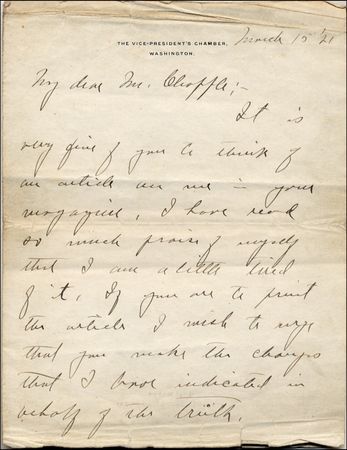 THE VICE-PRESIDENT'S CHAMBER,
WASHINGTON.
March 15 '21
My dear Mr. Chapple;-
It is
very fine of you to think of
an article on me in your
magazine. I have read
so much praise of myself
that I am a little tired
of it. If you are to print
the article I wish to urge
that you make the changes
that I have indicated in
behalf of the truth.